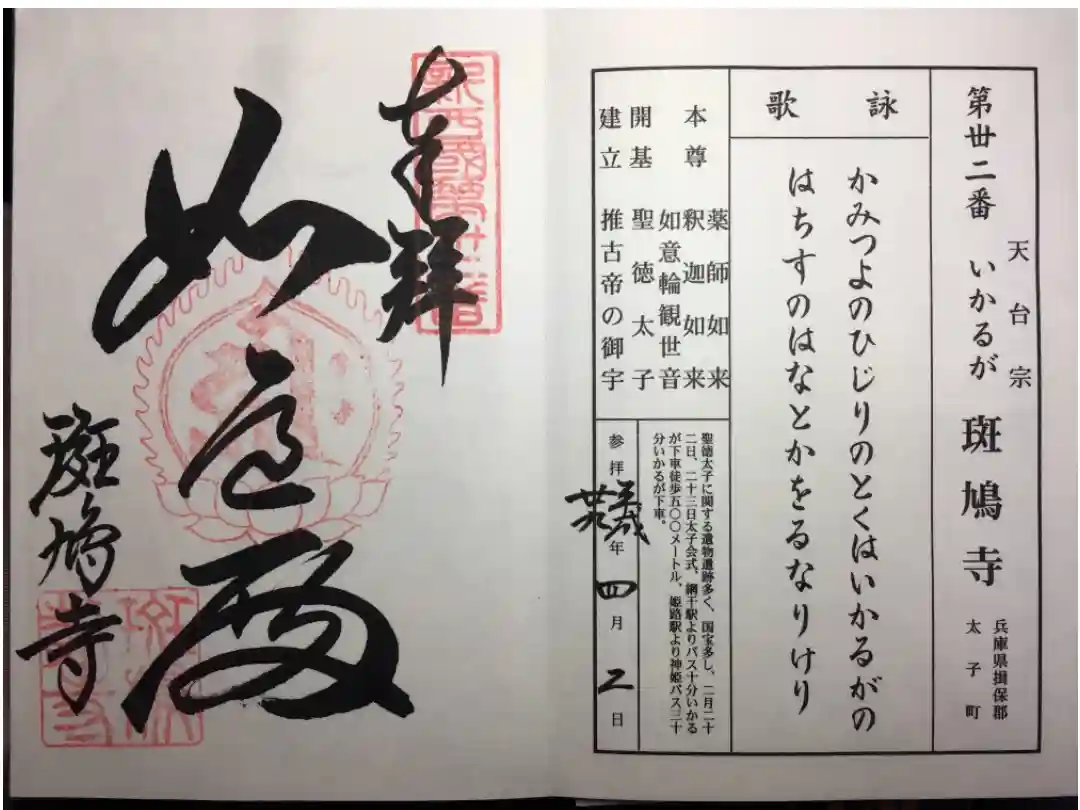 天台宗
第丗二番 いかるが 斑鳩寺
兵庫県揖保郡
太子町
詠歌
かみつよのひじりのとくはいかるがの
はちすのはなとかをるなりけり
本尊
薬師如来
釈迦如来
如意輪観世音
開基 聖徳太子
建立 推古帝の御宇
聖徳太子に関する遺物遺跡多く、国宝多し、二月二十
二日、二十三日太子会式、網干駅よりバス十分いかる
が下車徒歩五〇〇メートル、姫路駅より神姫バス三十
分いかるが下車。
参拝 年 四月 二日
奉拝
如意殿
斑鳩寺